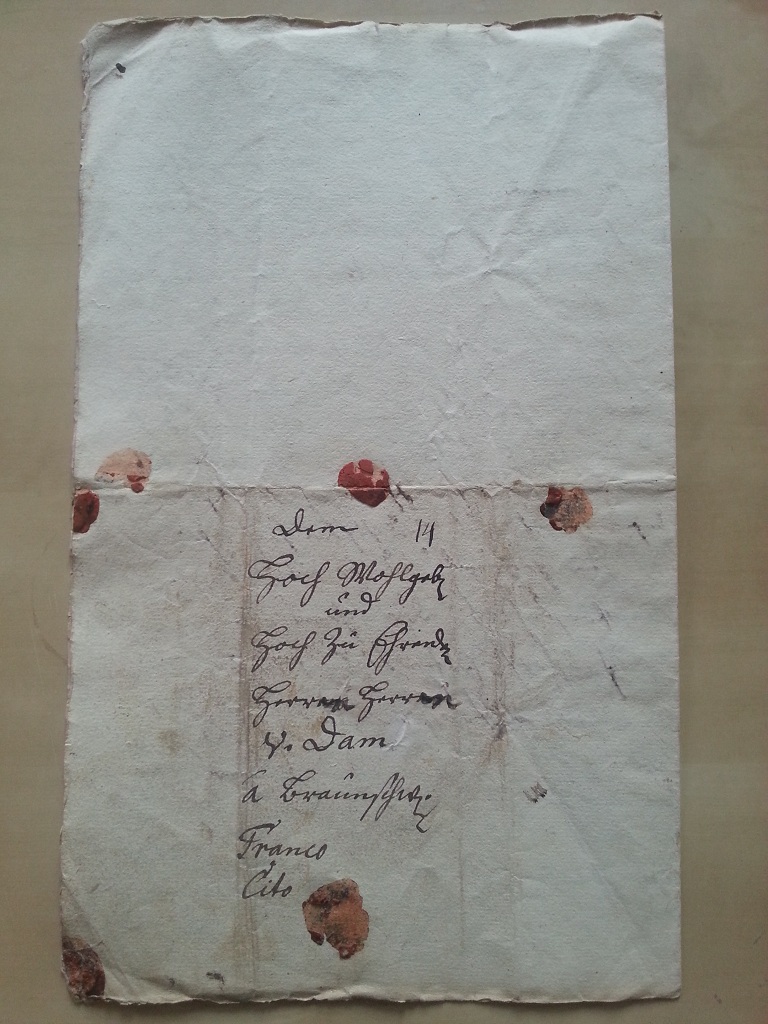 Dem 14
Hoch Wohlgeb
und
Hoch Zu Ehrende
Herren Herren
v. Dam
a Braunschw:
Franco
Cito